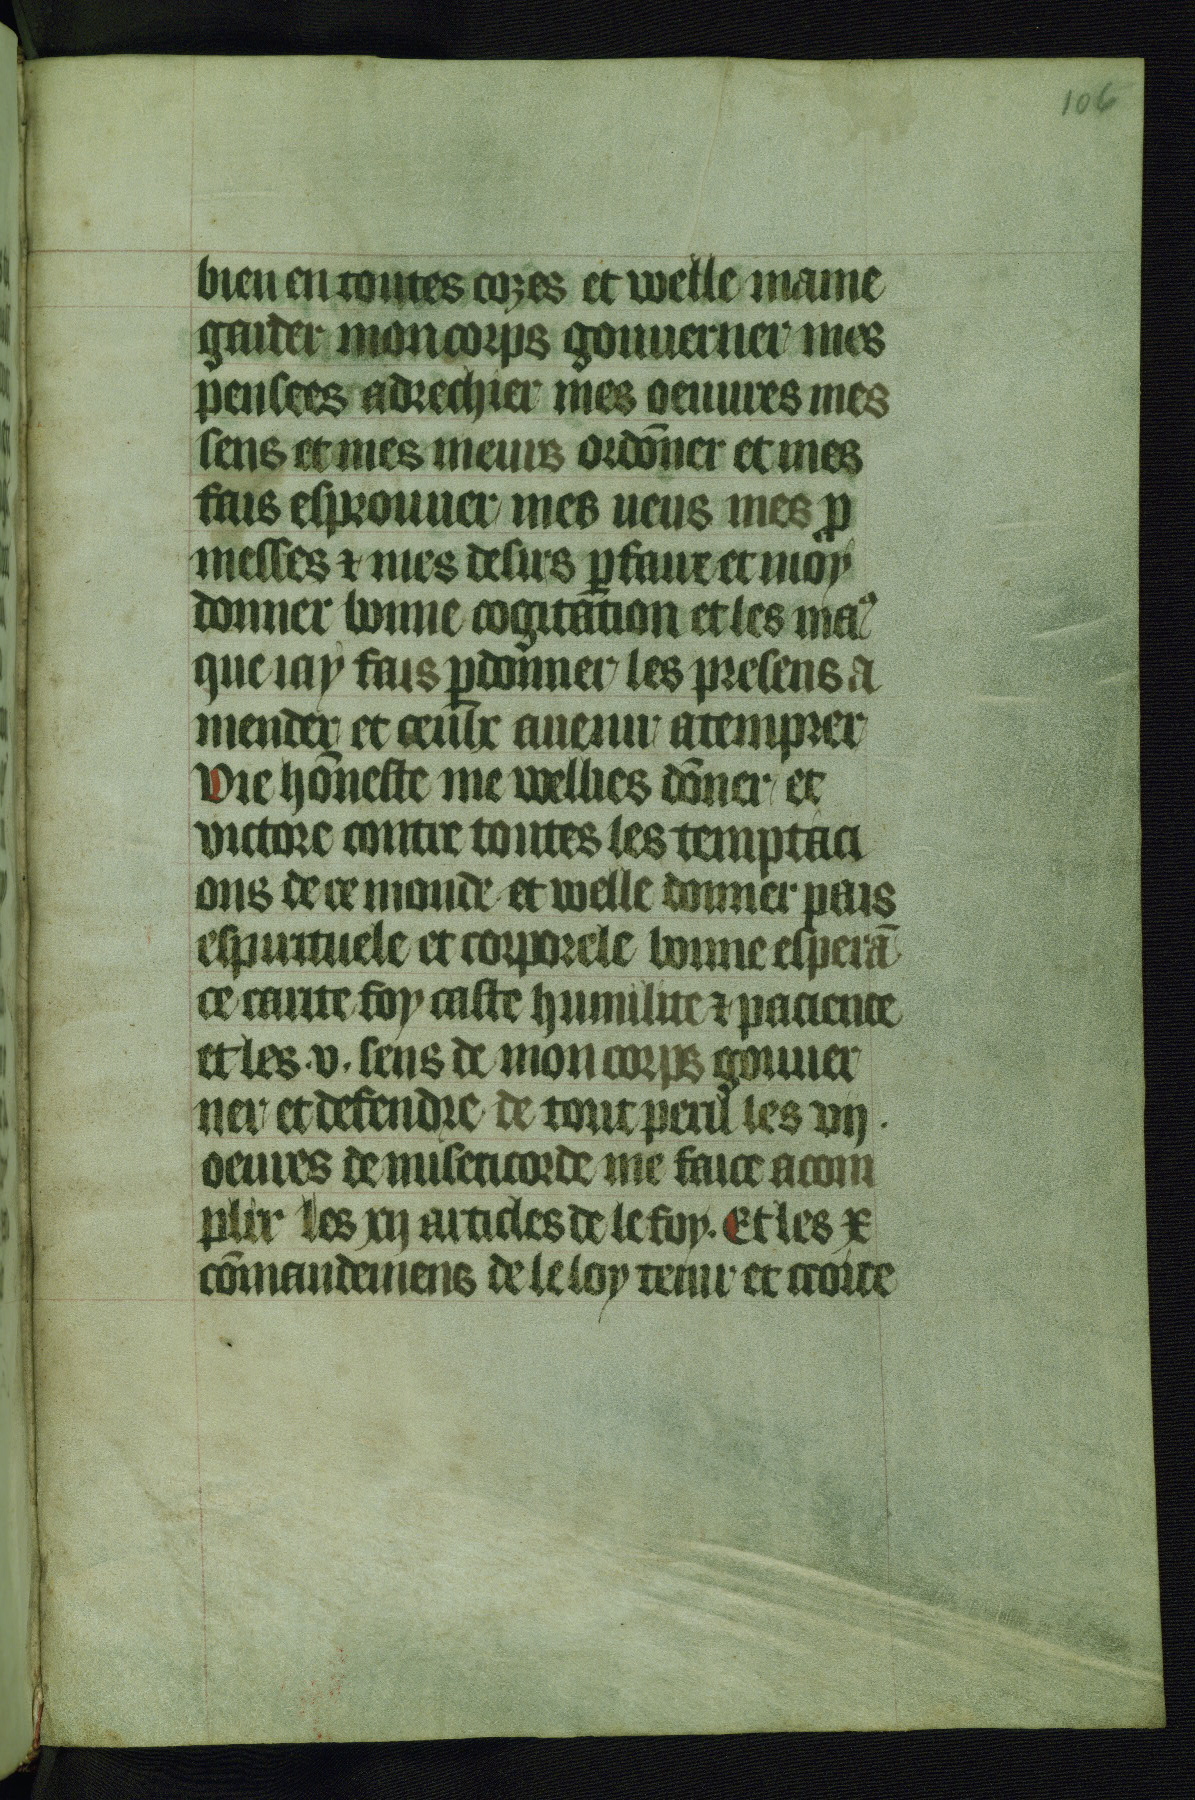 106
bien en toutes cozes et welle mame
garder mon corps gouuerner mes
pensees adrechier mes oeuures mes
sens et mes meurs ordōner et mes
fais esprouuer mes ueus mes ꝓ
messes ⁊ mes desirs ꝑfaire et moy
donner bonne cogitatiōn et les maˡˣ
que iay fais ꝑdonner les presens a
mender et ceulx auenir atemprer
Vie hōneste me wellies dōner et
victore contre toutes les temptaci
ons de ce monde et welle donner pais
espirituele et corporele bonne esperā
ce carite foy caste humilite ⁊ pacience
et les .v. sens de mon corps gouuer
ner et defendre de tout peril les vij.
oeuures de misericorde me faice acom
plir les xij articles de le foy. Et les x
cōmandemens de le loy tenir et croire